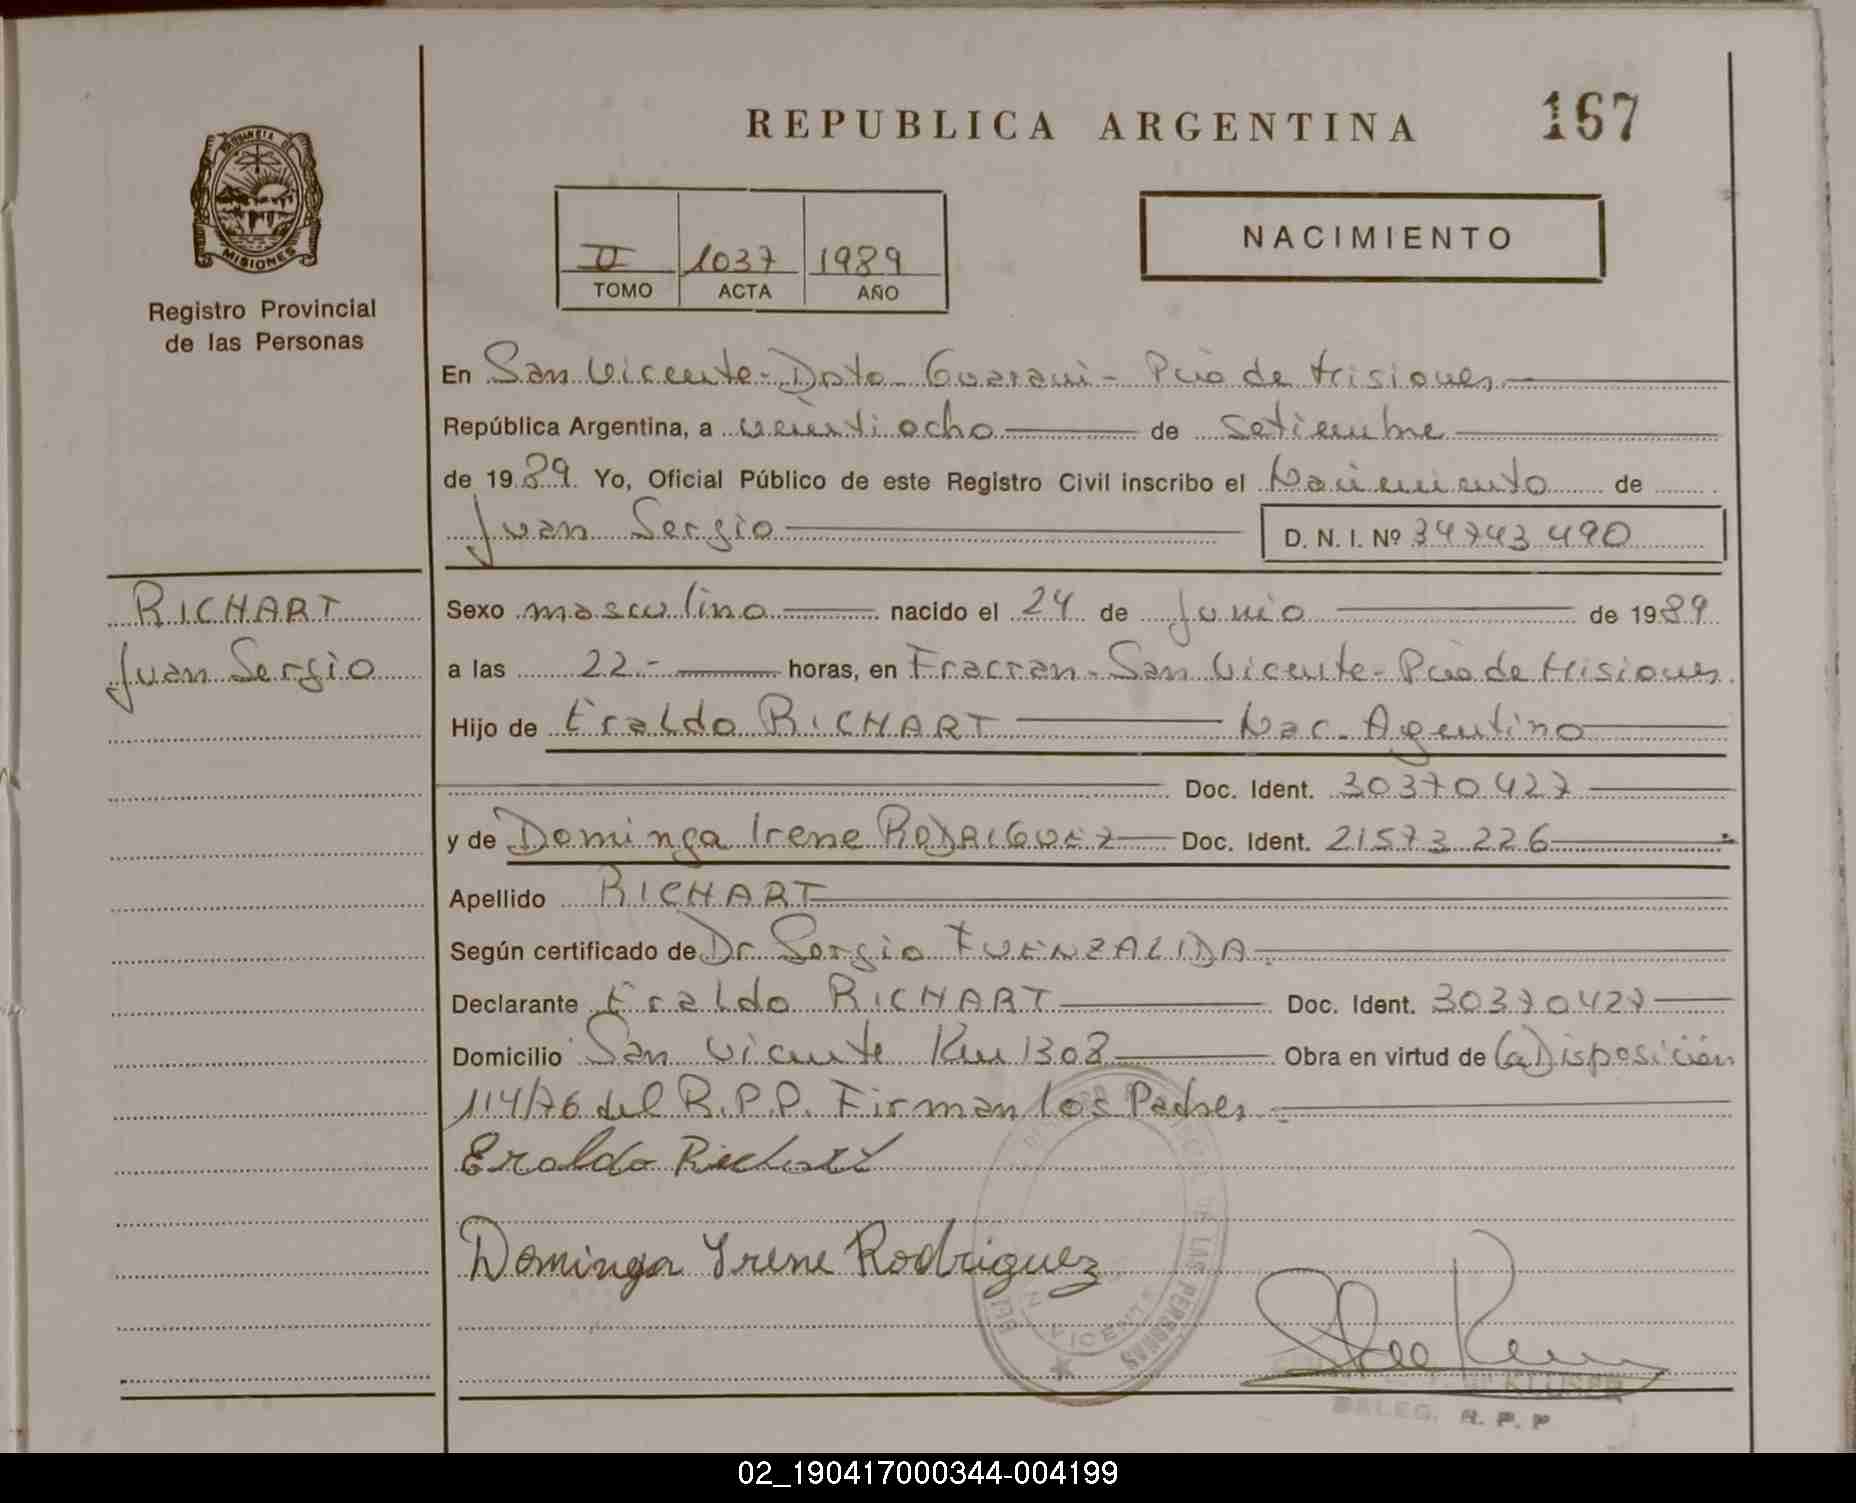 REPUBLICA ARGENTINA 167
PROVINCIA DE
MISIONES
Registro Provincial
de las Personas
II 1037 1989
TOMO ACTA AÑO
NACIMIENTO
En San Vicente - Dpto Guarani - Pcia de Misiones
República Argentina, a veinti ocho de setiembre
de 1989. Yo, Oficial Público de este Registro Civil inscribo el Nacimiento de
Juan Sergio D. N. I. Nº 34743490
RICHART
Juan Sergio
Sexo masculino nacido el 24 de Junio de 1989
a las 22.- horas, en Fracran - San Vicente - Pcia de Misiones.
Hijo de Eraldo RICHART Nac. Agentino
Doc. Ident. 30370427
y de Dominga Irene RODRIGUEZ Doc. Ident. 21573226
Apellido RICHART
Según certificado de Dr Sergio FUENZALIDA.
Declarante Eraldo RICHART Doc. Ident. 30370427
Domicilio San Vicente Km 1308 Obra en virtud de (a) Disposición
114/76 del R.P.P. Firman los Padres.
Eraldo Richart
Dominga Yrene Rodriguez
DE LAS PERSONAS
VICENTE
DELEG. R. P. P
02_190417000344-004199